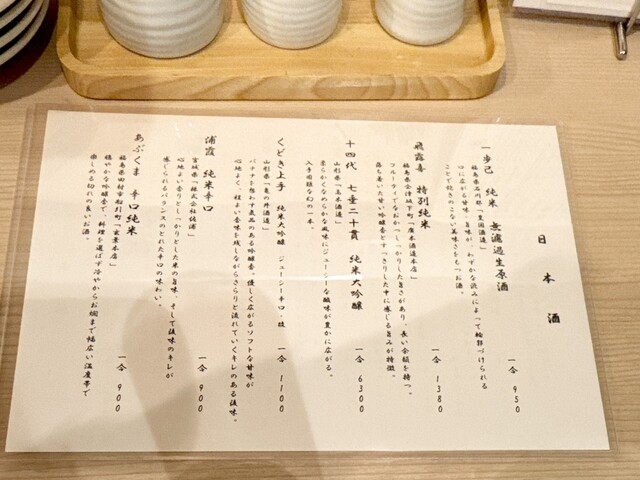 日本酒
一歩己 純米 無濾過生原酒
福島県石川郡「豊国酒造」
口に広がる甘味・旨味が、わずかな渋みによって輪郭づけられる
ことで飽きのこない美味さをもつお酒。
一合 950
飛露喜 特別純米
福島県会津坂下町「廣木酒造本店」
フルーティでなおかつしっかりした旨さがあり、長い余韻を持つ。
落ち着いた甘い吟醸香とすっきりした中に感じる旨みが特徴。
一合 1380
十四代 七垂二十貫 純米大吟醸
山形県「高木酒造」
柔らかくなめらかな風味にジューシーな酸味が豊かに広がる。
入手困難な幻の一本。
一合 6300
くどき上手 純米大吟醸 ジューシー辛口・改
山形県「亀の井酒造」
バナナを思わす気品のある吟醸香。優しく広がるソフトな甘味が
心地よく、程よい香味を残しながらさらりと流れていくキレのある後味。
一合 1100
浦霞 純米辛口
宮城県「株式会社佐浦」
心地よい香りとしっかりとした米の旨味、そして後味のキレが
感じられるバランスのとれた辛口の味わい。
一合 900
あぶくま 辛口純米
福島県田村市船引町「玄葉本店」
穏やかな吟醸香で、料理を選ばず冷やからお燗まで幅広い温度帯で
楽しめる切れの良いお酒。
一合 900